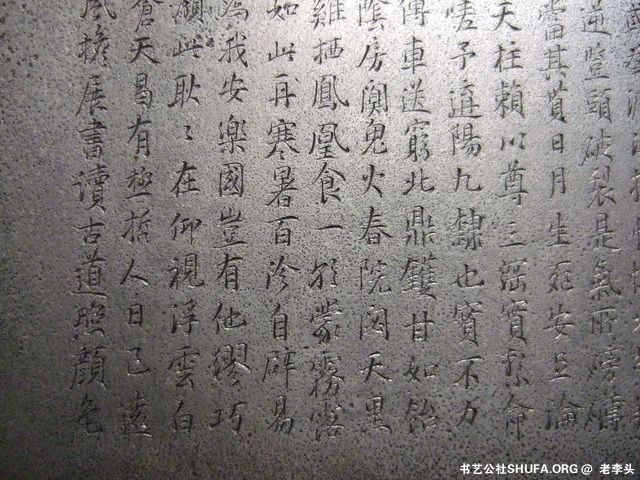 逆豎頭破裂是氣所磅礡
當其貫日月生死安足論
天柱賴以尊三綱實繫命
嗟予遘陽九隸也實不力
傳車送窮北鼎鑊甘如飴
陰房闃鬼火春院閟天黑
雞栖鳳凰食一朝蒙霧露
如此再寒暑百沴自辟易
為我安樂國豈有他繆巧
顧此耿〻在仰視浮雲白
蒼天曷有極哲人日已遠
風檐展書讀古道照顏色
书艺公社SHUFA.ORG @ 老李头